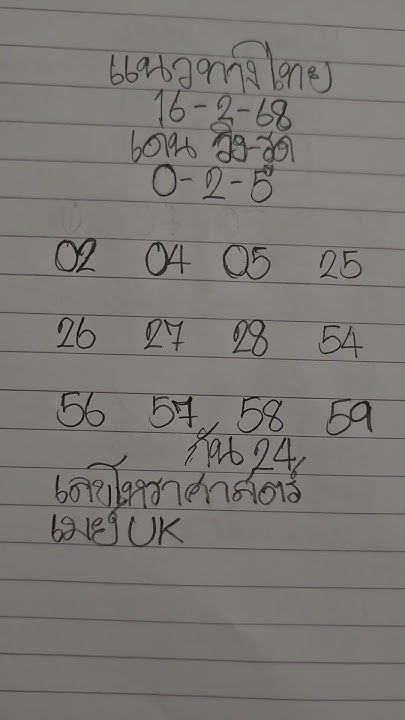 แนวทางไทย
16-2-68
เด่น วิ่ง-รูด
0-2-5
02 04 05 25
26 27 28 54
56 57 58 59
กัน 24,
เลขโหราศาสตร์
เมย์ UK